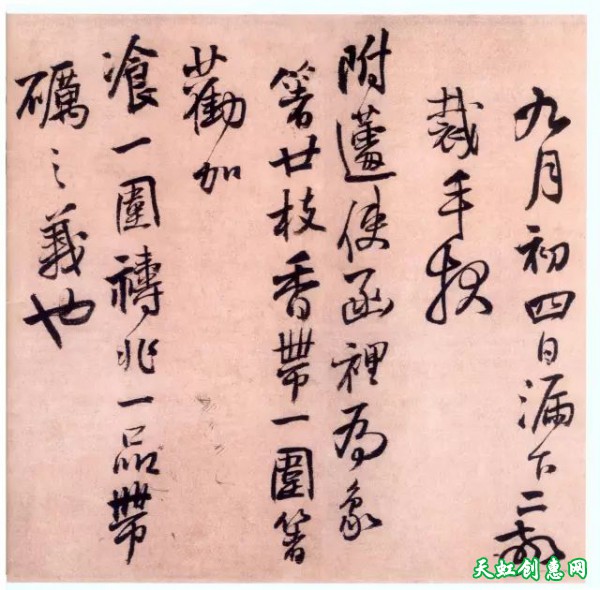 九月初四日漏下二鼓
裁手狀
附使函裡為象
箸廿枝香帶一圍箸
以勸加
湌一圍禱兆一品帶
礪之義也
天虹创惠网